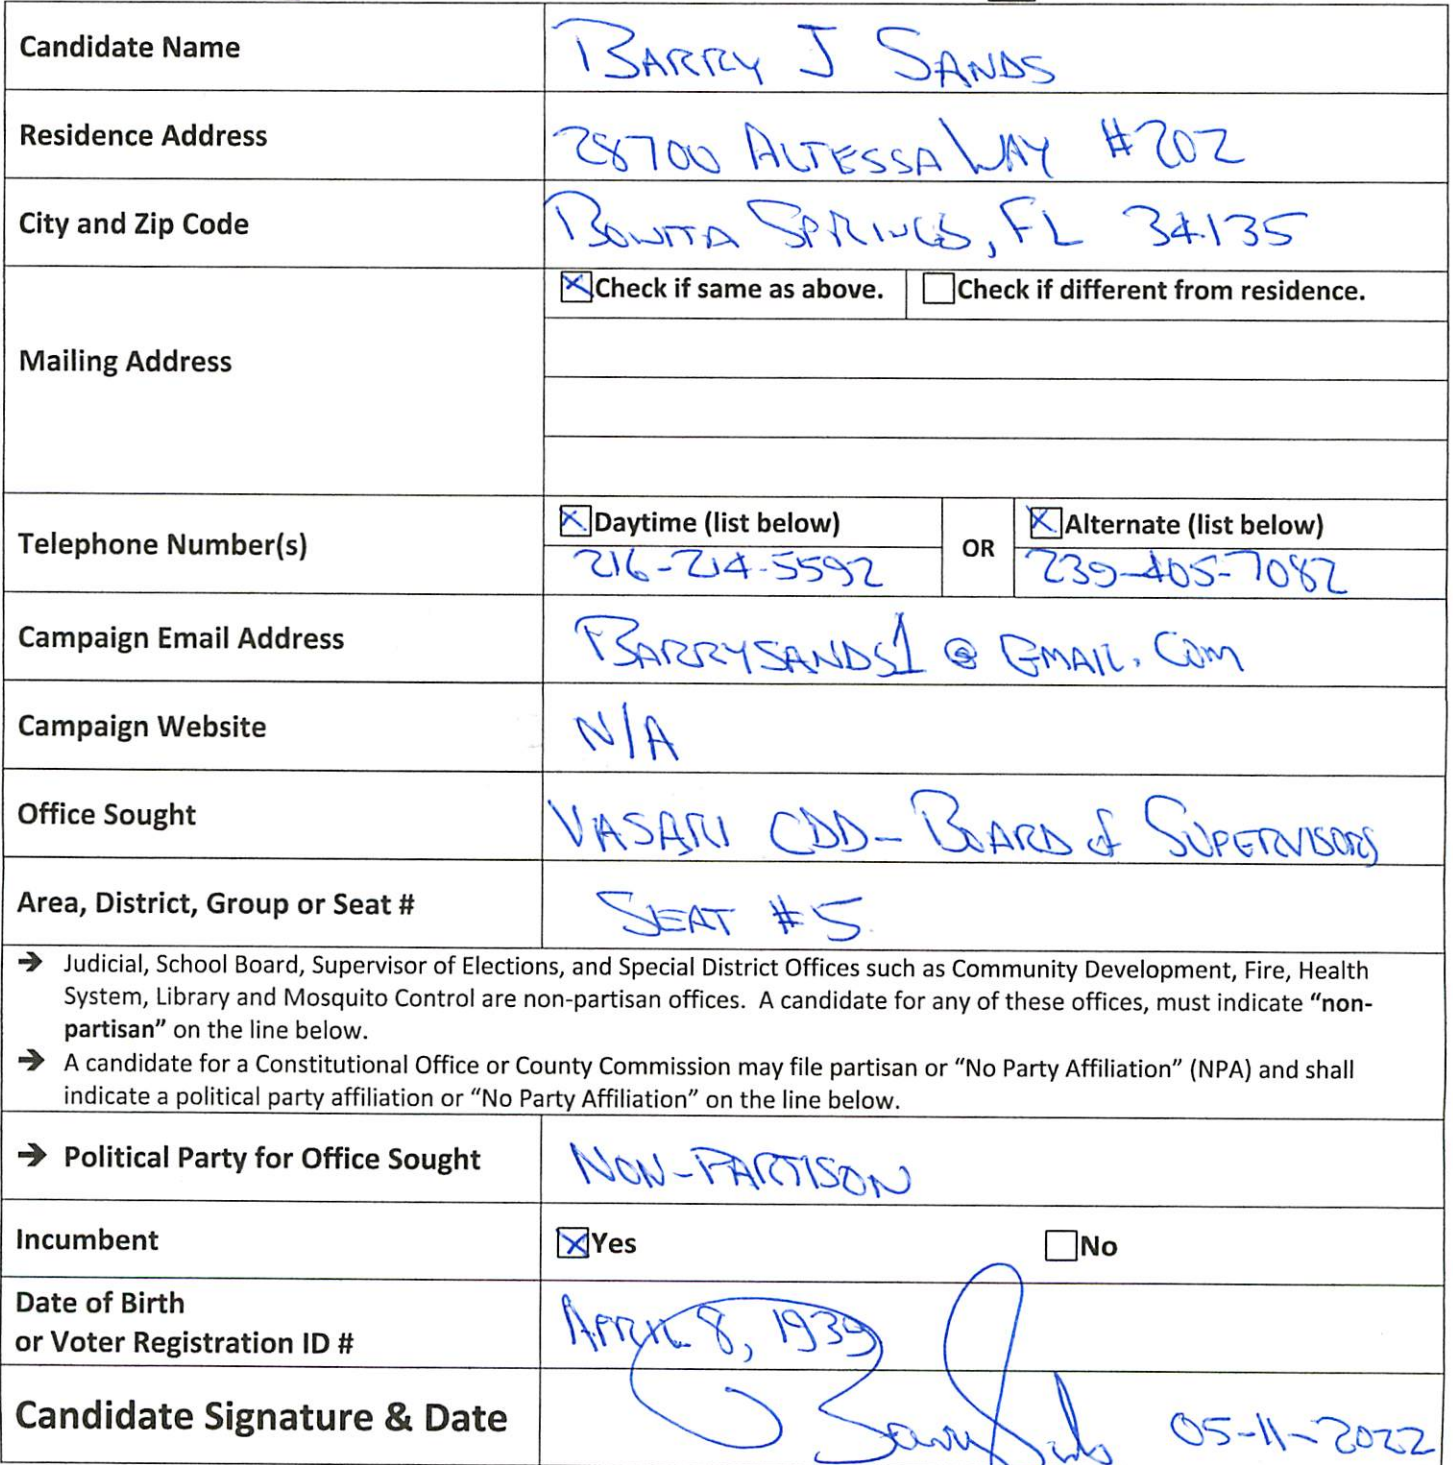 Candidate Name BARRY J SANDS
Residence Address 28700 ALTESSA WAY #202
City and Zip Code BONITA SPRINGS, FL 34135
Mailing Address
☒ Check if same as above. ☐ Check if different from residence.
Telephone Number(s)
☒ Daytime (list below) OR ☒ Alternate (list below)
216-214-5592 239-405-7082
Campaign Email Address BARRYSANDS1 @ GMAIL.COM
Campaign Website N/A
Office Sought VASARI CDD - BOARD of SUPERVISORS
Area, District, Group or Seat # SEAT #5
→ Judicial, School Board, Supervisor of Elections, and Special District Offices such as Community Development, Fire, Health
System, Library and Mosquito Control are non-partisan offices. A candidate for any of these offices, must indicate “non-
partisan” on the line below.
→ A candidate for a Constitutional Office or County Commission may file partisan or “No Party Affiliation” (NPA) and shall
indicate a political party affiliation or “No Party Affiliation” on the line below.
→ Political Party for Office Sought NON-PARTISON
Incumbent ☒ Yes ☐ No
Date of Birth
or Voter Registration ID # APRIL 8, 1939
Candidate Signature & Date Barry Sands 05-11-2022